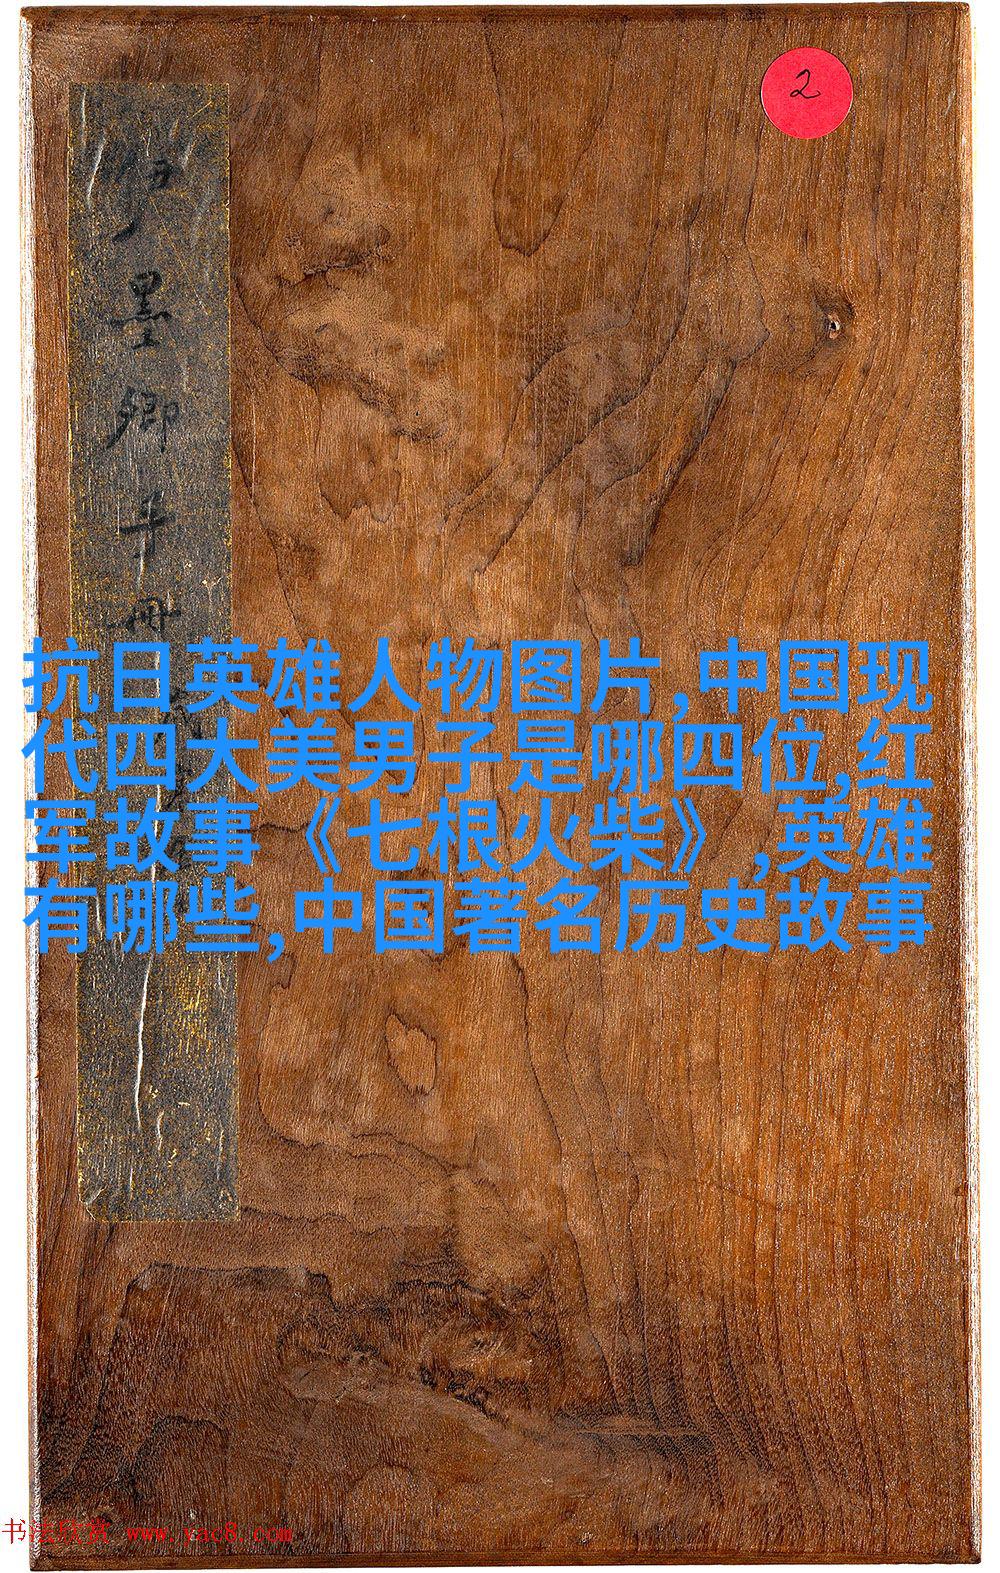 2
墨卿手冊
抗日英雄人物图片,中国现
代四大美男子是哪四位,红
军故事《七根火柴》,英雄
有哪些,中国著名历史故事
书法欣赏 www.yac8.com